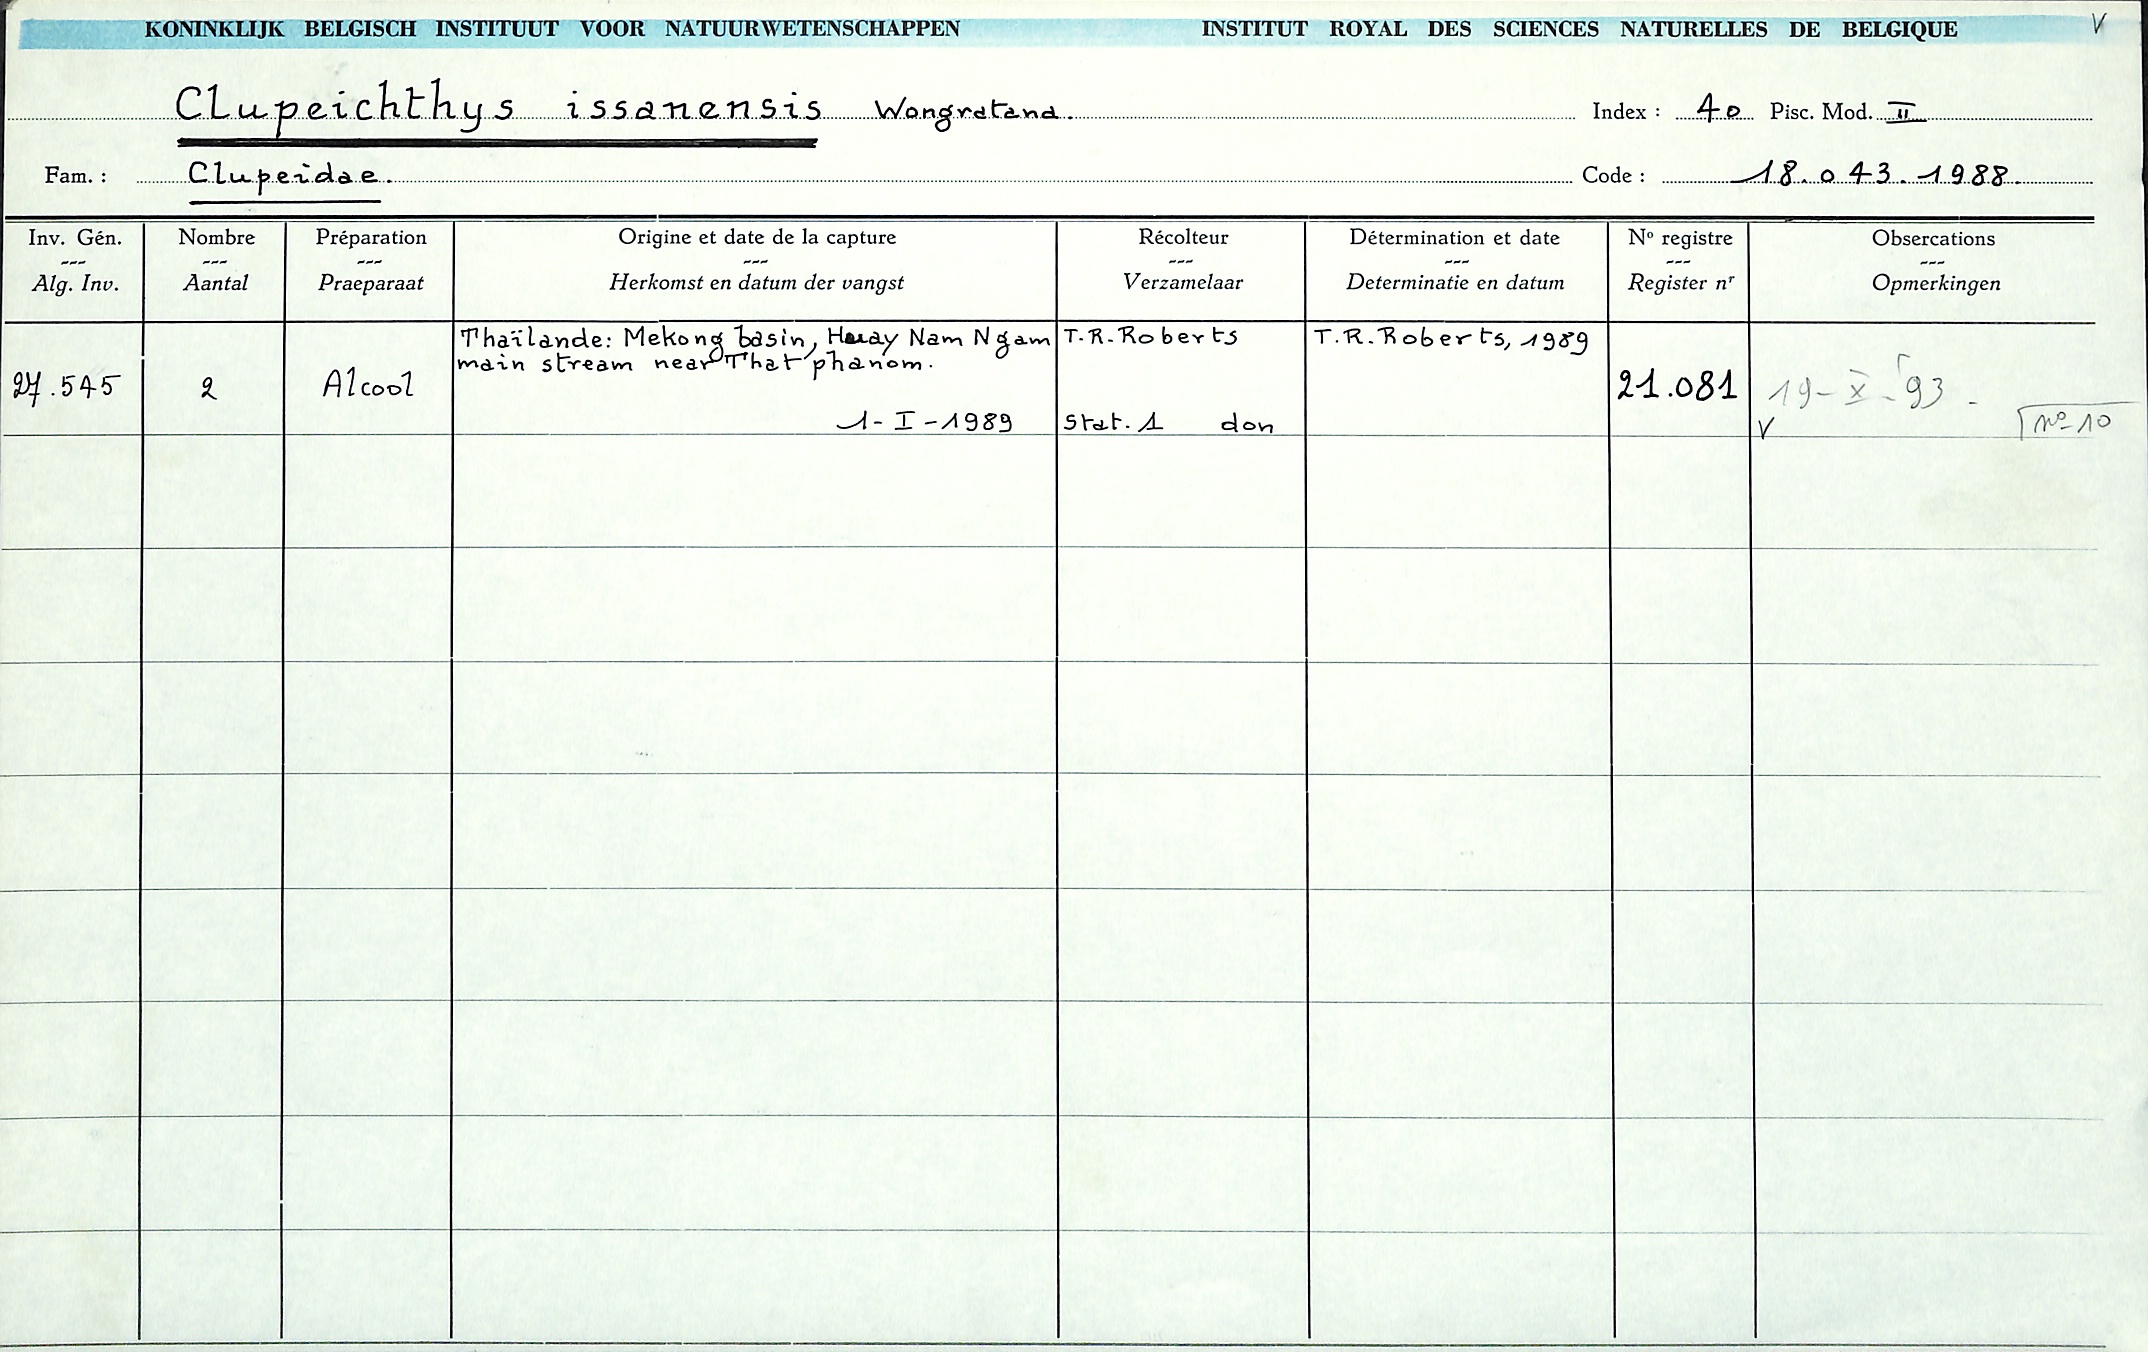 KONINKLIJK BELGISCH INSTITUUT VOOR NATUURWETENSCHAPPEN INSTITUT ROYAL DES SCIENCES NATURELLES DE BELGIQUE V
Clupeichthys issanensis Wongratana. Index : 40 Pisc. Mod. II
Fam. : Clupeidae. Code : 18.043.1988.
Inv. Gén. Nombre Préparation Origine et date de la capture Récolteur Détermination et date No registre Obsercations
--- --- --- --- --- --- --- ---
Alg. Inv. Aantal Praeparaat Herkomst en datum der vangst Verzamelaar Determinatie en datum Register nr Opmerkingen
Thaïlande: Mekong basin, Huay Nam Ngam T.R. Roberts T.R. Roberts, 1989
main stream near That phanom.
27.545 2 Alcool 21.081 19-X-'93 -
1-I-1989 Stat. 1 don V no 10